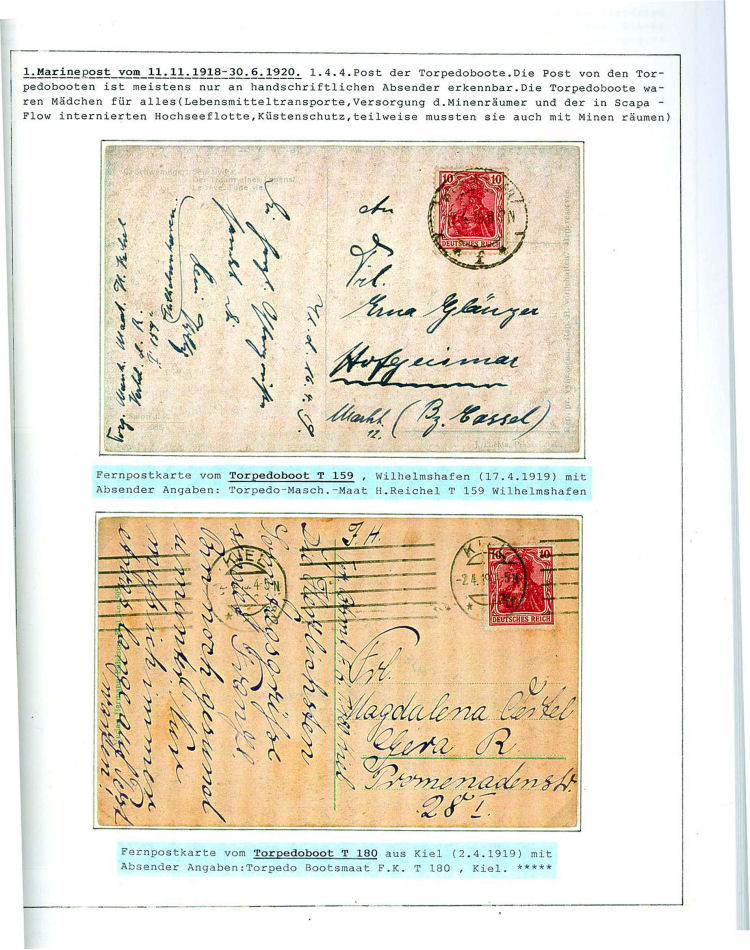 1.Marinepost vom 11.11.1918-30.6.1920. 1.4.4.Post der Torpedoboote.Die Post von den Tor-
pedobooten ist meistens nur an handschriftlichen Absender erkennbar.Die Torpedoboote wa-
ren Mädchen für alles(Lebensmitteltransporte,Versorgung d.Minenräumer und der in Scapa -
Flow internierten Hochseeflotte,Küstenschutz,teilweise mussten sie auch mit Minen räumen)
10 10
DEUTSCHES REICH
f
An
Frl.
Erna Glänzer
Hofgeismar
Markt. (Bz. Cassel)
12.
W. d. 16.4.19.
Wilhelmshaven.
T 159
Fernpostkarte vom Torpedoboot T 159 , Wilhelmshafen (17.4.1919) mit
Absender Angaben: Torpedo-Masch.-Maat H.Reichel T 159 Wilhelmshafen
KIEL
4.5-N
KIEL
-2.4.19
10 10
DEUTSCHES REICH
Die herzlichsten
Sonntagsgrüße
sendet Franz.
Bin noch gesund
u. munter. Nur
muß ich immer
Frl.
Magdalena Oertel
Gera R.
Promenadenstr.
28 I.
Fernpostkarte vom Torpedoboot T 180 aus Kiel (2.4.1919) mit
Absender Angaben:Torpedo Bootsmaat F.K. T 180 , Kiel. *****